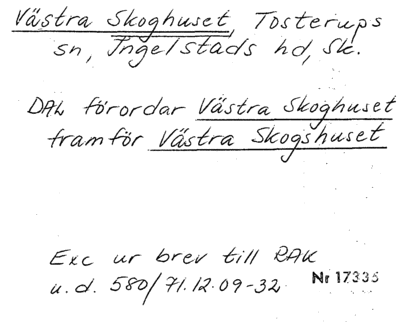 Västra Skoghuset, Tosterups
sn, Ingelstads hd, Sk.
DAL förordar Västra Skoghuset
framför Västra Skogshuset
Exc ur brev till RAK
u.d. 580/71.12.09-32 Nr 17335